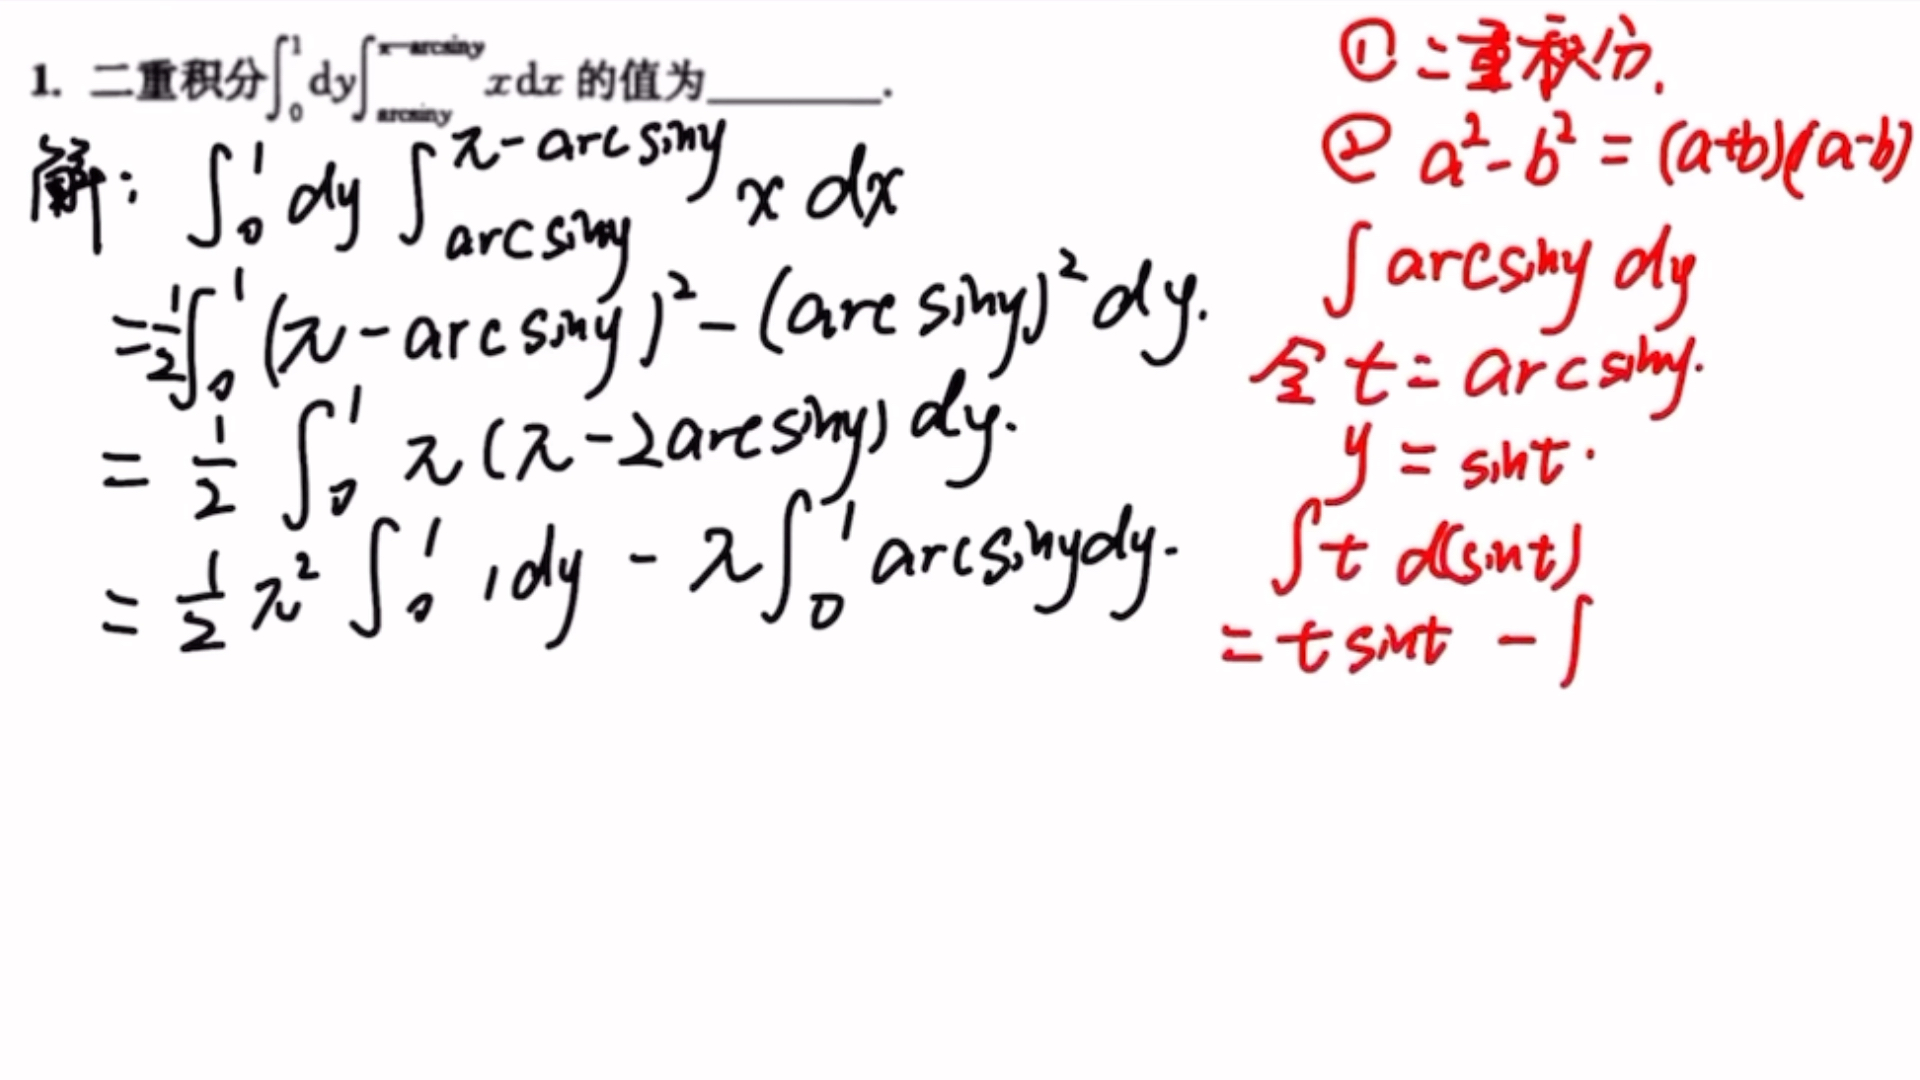 1. 二重积分∫₀¹dy∫_{arcsiny}^{π−arcsiny} xdx 的值为________.
解: ∫₀¹ dy ∫_{arcsiny}^{π-arcsiny} x dx
=½∫₀¹ (π-arcsiny)² - (arcsiny)² dy.
= ½ ∫₀¹ π(π-2arcsiny) dy.
= ½ π² ∫₀¹ 1dy - π∫₀¹ arcsinydy.
① 二重积分.
② a²-b² = (a+b)(a-b)
∫ arcsiny dy
令 t = arcsiny.
y = sint.
∫t d(sint)
= t sint - ∫